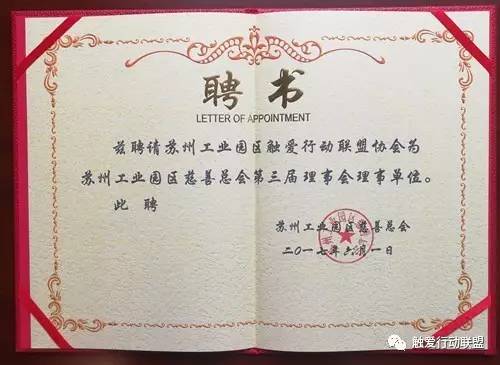 聘书
LETTER OF APPOINTMENT
兹聘请苏州工业园区触爱行动联盟协会为
苏州工业园区慈善总会第三届理事会理事单位。
此聘
苏州工业园区慈善总会
二〇一七年六月一日
触爱行动联盟